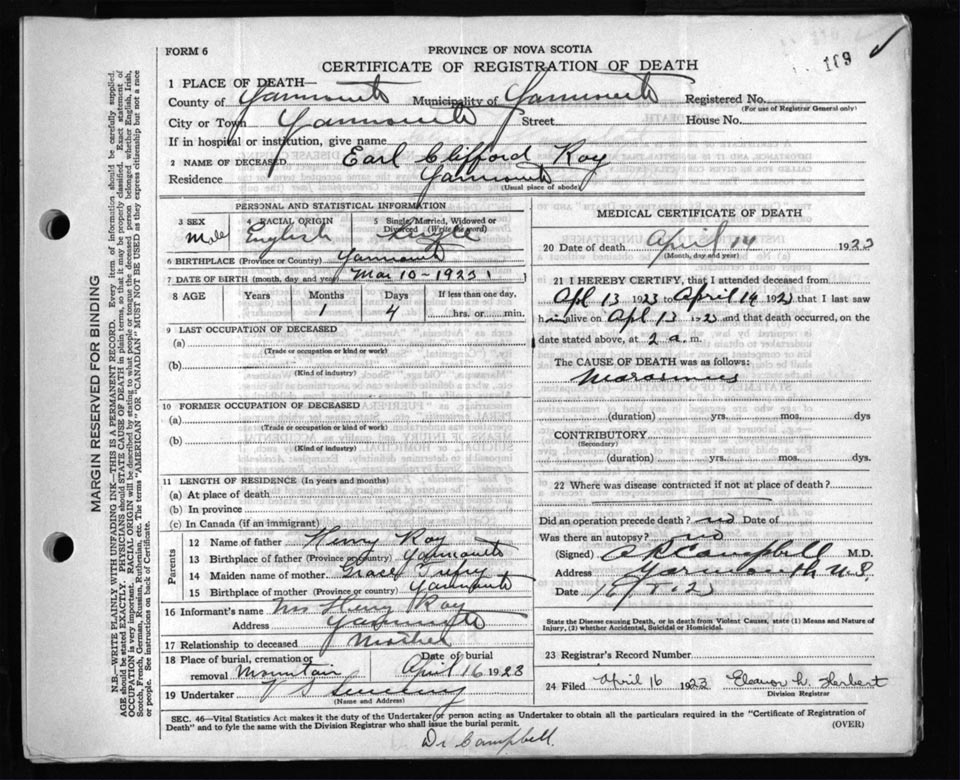 FORM 6
PROVINCE OF NOVA SCOTIA
CERTIFICATE OF REGISTRATION OF DEATH
169
1 PLACE OF DEATH—
County of Yarmouth Municipality of Yarmouth Registered No.
(For use of Registrar General only)
City or Town Yarmouth Street House No.
If in hospital or institution, give name
2 NAME OF DECEASED Earl Clifford Roy
Residence Yarmouth
(Usual place of abode)
PERSONAL AND STATISTICAL INFORMATION
3 SEX Male
4 RACIAL ORIGIN English
5 Single, Married, Widowed or Divorced (Write the word) Single
6 BIRTHPLACE (Province or Country) Yarmouth
7 DATE OF BIRTH (month, day and year) Mar 10 - 1923
8 AGE Years Months Days If less than one day,
1 4 hrs. or min.
9 LAST OCCUPATION OF DECEASED
(a)
(Trade or occupation or kind or work)
(b)
(Kind of industry)
10 FORMER OCCUPATION OF DECEASED
(a)
(Trade or occupation or kind or work)
(b)
(Kind of industry)
11 LENGTH OF RESIDENCE (In years and months)
(a) At place of death
(b) In province
(c) In Canada (if an immigrant)
Parents
12 Name of father Henry Roy
13 Birthplace of father (Province or country) Yarmouth
14 Maiden name of mother Grace Trefry
15 Birthplace of mother (Province or country) Yarmouth
16 Informant's name Mrs Henry Roy
Address Yarmouth
17 Relationship to deceased Mother
18 Place of burial, cremation or removal Mountain Date of burial April 16 1923
19 Undertaker
(Name and Address)
MEDICAL CERTIFICATE OF DEATH
20 Date of death April 14 1923
(Month, day and year)
21 I HEREBY CERTIFY, that I attended deceased from
Apl 13 1923 to April 14 1923 that I last saw
him alive on Apl 13 192 and that death occurred, on
date stated above, at 2 a. m.
The CAUSE OF DEATH was as follows:
Marasmus
(duration) yrs. mos. dys
CONTRIBUTORY
(Secondary)
(duration) yrs. mos. dys
22 Where was disease contracted if not at place of death?
Did an operation precede death? no Date of
Was there an autopsy? no
(Signed) Campbell M.D.
Address Yarmouth N S
Date
State the Disease causing Death, or in death from Violent Causes, state (1) Means and Nature of
Injury, (2) whether Accidental, Suicidal or Homicidal.
23 Registrar's Record Number
24 Filed April 16 1923 Eleanor L. Herbert
Division Registrar
SEC. 46—Vital Statistics Act makes it the duty of the Undertaker or person acting as Undertaker to obtain all the particulars required in the "Certificate of Registration of
Death" and to fyle the same with the Division Registrar who shall issue the burial permit. (OVER)
Dr Campbell.
MARGIN RESERVED FOR BINDING
N.B.—WRITE PLAINLY WITH UNFADING INK—THIS IS A PERMANENT RECORD. Every item of information should be carefully supplied.
AGE should be stated EXACTLY. PHYSICIANS should STATE CAUSE OF DEATH in plain terms, so that it may be properly classified. Exact statement of
OCCUPATION is very important. RACIAL ORIGIN will be described by stating to what people or race the deceased person belonged whether English, Irish,
Scotch, French, German, Russian, Ruthenian, etc. The terms "AMERICAN" OR "CANADIAN" MUST NOT BE USED as they express citizenship but not a race
or people. See instructions on back of Certificate.